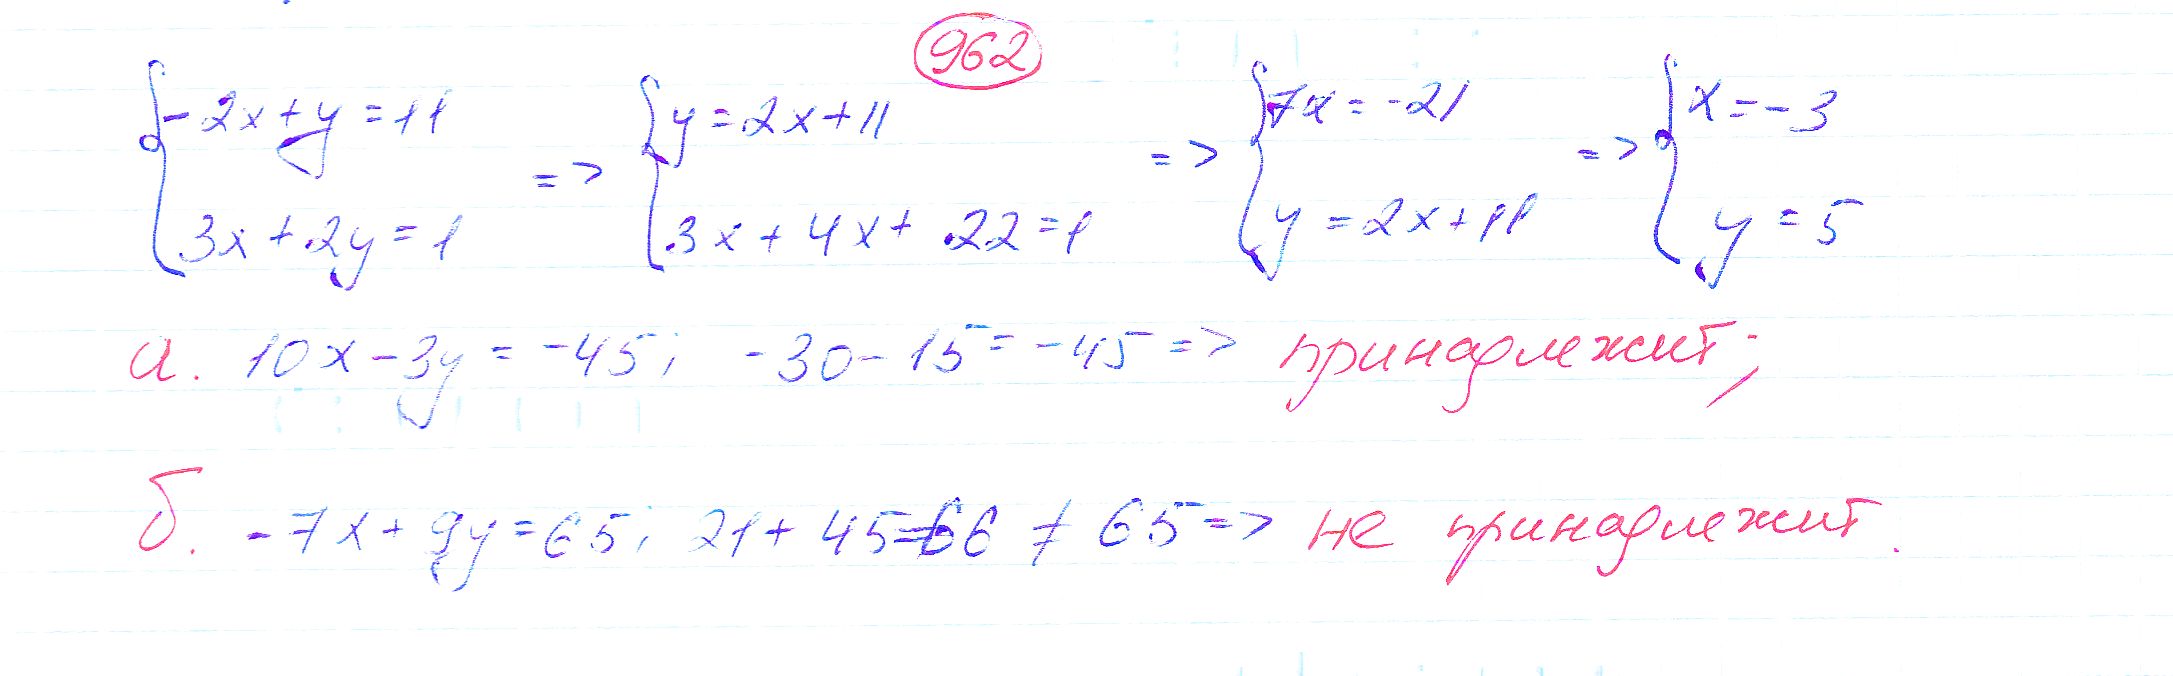 962
{-2x+y=11 => {y=2x+11 => {7x=-21 => {x=-3
{3x+2y=1 {3x+4x+22=1 {y=2x+11 {y=5
а. 10x-3y=-45; -30-15=-45=> принадлежит;
б. -7x+9y=65; 21+45=66≠65=> не принадлежит.